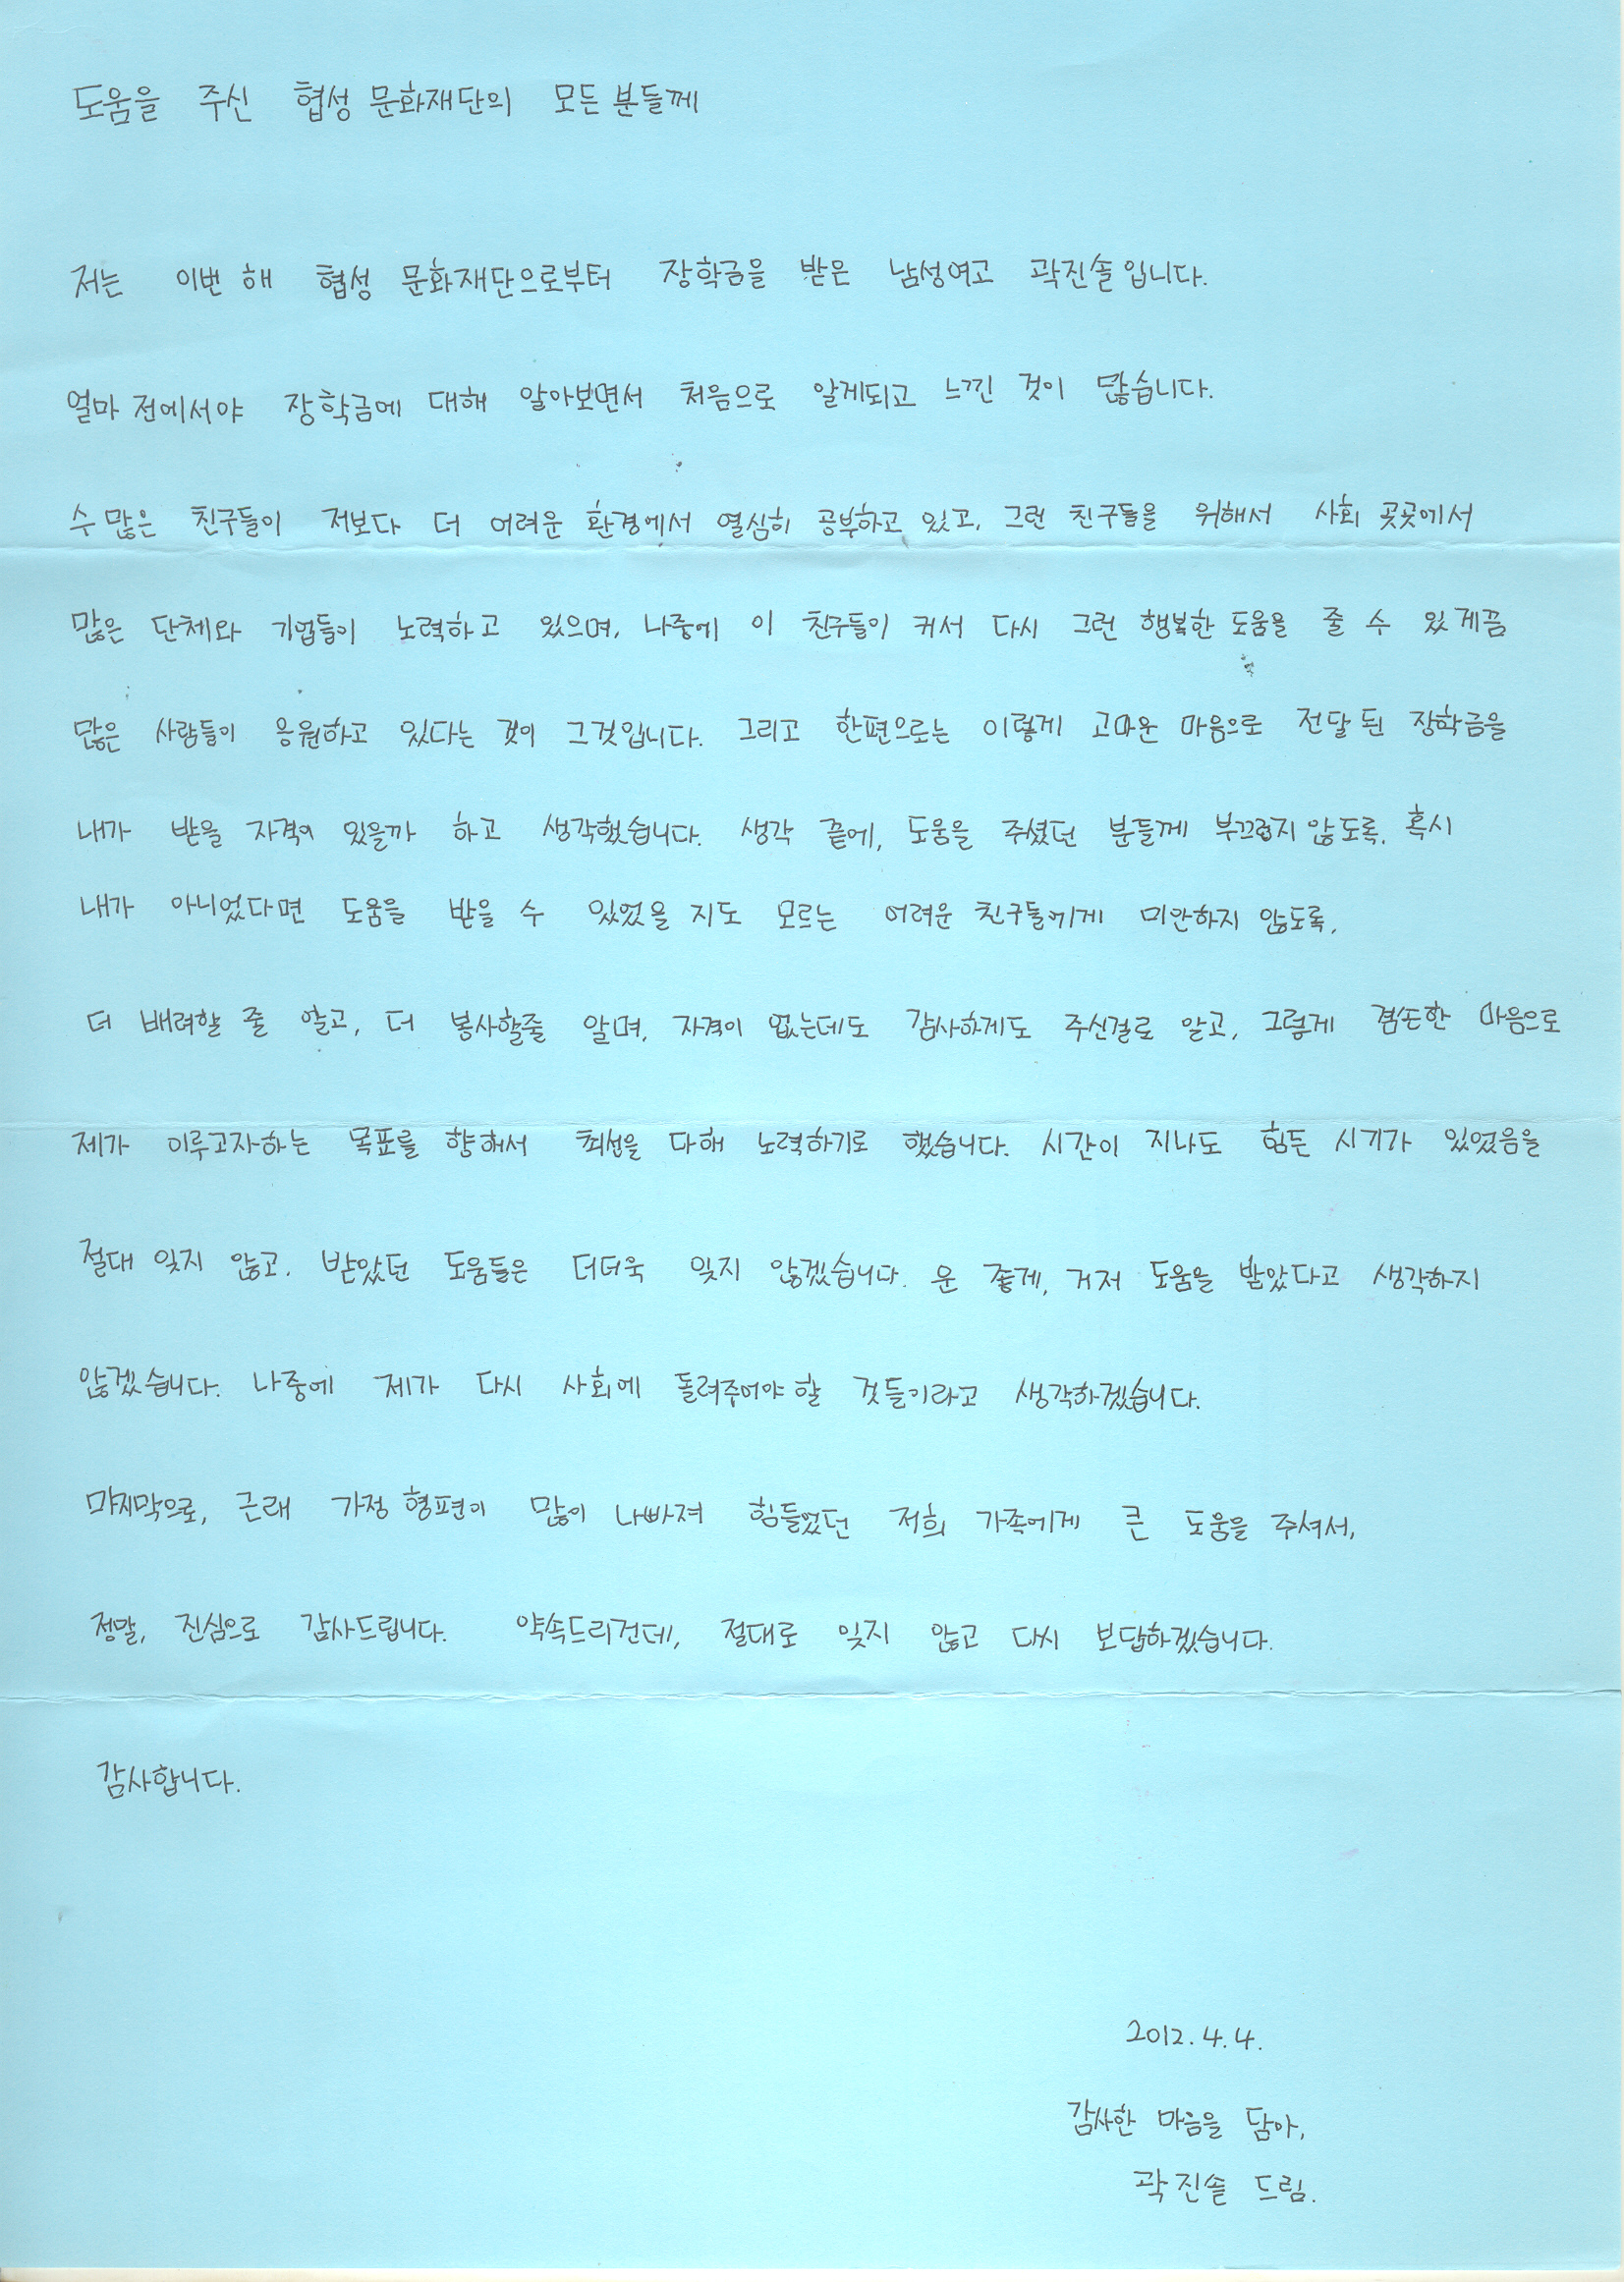 도움을 주신 협성 문화재단의 모든 분들께
저는 이번 해 협성 문화재단으로부터 장학금을 받은 남성여고 곽진솔입니다.
얼마 전에서야 장학금에 대해 알아보면서 처음으로 알게되고 느낀 것이 많습니다.
수 많은 친구들이 저보다 더 어려운 환경에서 열심히 공부하고 있고, 그런 친구들을 위해서 사회 곳곳에서
많은 단체와 기업들이 노력하고 있으며, 나중에 이 친구들이 커서 다시 그런 행복한 도움을 줄 수 있게끔
많은 사람들이 응원하고 있다는 것이 그것입니다. 그리고 한편으로는 이렇게 고마운 마음으로 전달된 장학금을
내가 받을 자격이 있을까 하고 생각했습니다. 생각 끝에, 도움을 주셨던 분들께 부끄럽지 않도록, 혹시
내가 아니었다면 도움을 받을 수 있었을 지도 모르는 어려운 친구들에게 미안하지 않도록,
더 배려할 줄 알고, 더 봉사할줄 알며, 자격이 없는데도 감사하게도 주신걸로 알고, 그렇게 겸손한 마음으로
제가 이루고자하는 목표를 향해서 최선을 다해 노력하기로 했습니다. 시간이 지나도 힘든 시기가 있었음을
절대 잊지 않고, 받았던 도움들은 더더욱 잊지 않겠습니다. 운 좋게, 거저 도움을 받았다고 생각하지
않겠습니다. 나중에 제가 다시 사회에 돌려주어야 할 것들이라고 생각하겠습니다.
마지막으로, 근래 가정 형편이 많이 나빠져 힘들었던 저희 가족에게 큰 도움을 주셔서,
정말, 진심으로 감사드립니다. 약속드리건데, 절대로 잊지 않고 다시 보답하겠습니다.
감사합니다.
2012. 4. 4.
감사한 마음을 담아,
곽진솔 드림.